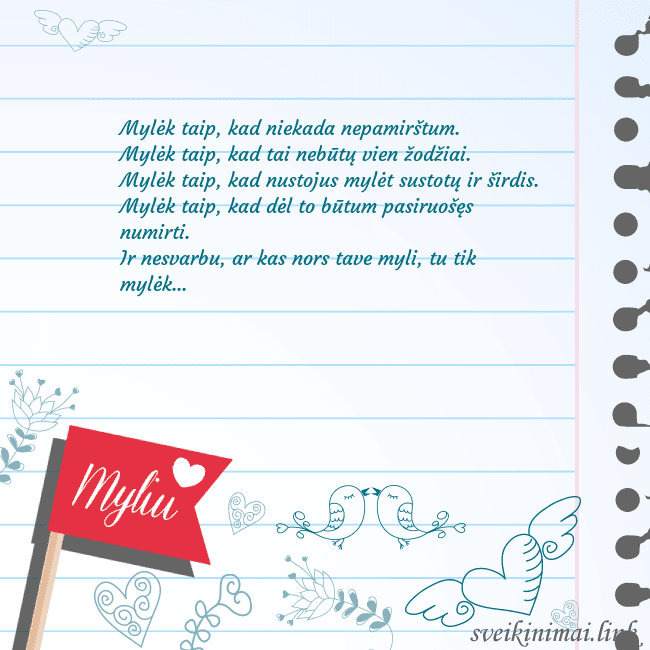 Mylėk taip, kad niekada nepamirštum.
Mylėk taip, kad tai nebūtų vien žodžiai.
Mylėk taip, kad nustojus mylėt sustotų ir širdis.
Mylėk taip, kad dėl to būtum pasiruošęs
numirti.
Ir nesvarbu, ar kas nors tave myli, tu tik
mylėk...
Myliu
sveikinimai.link